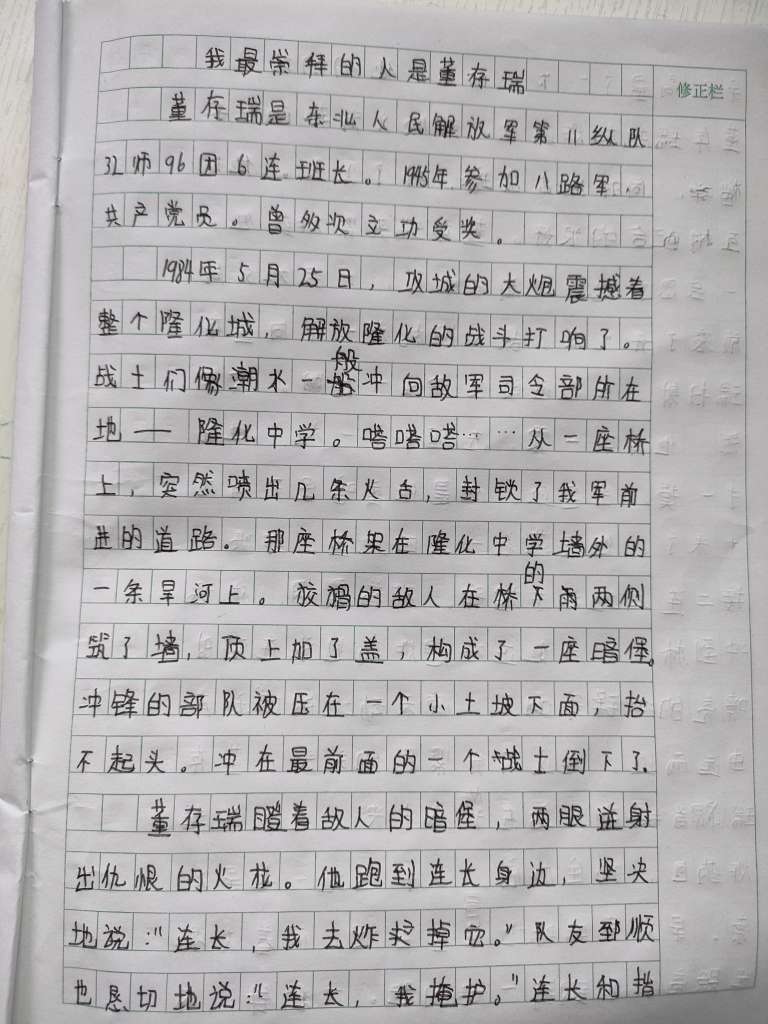 我最崇拜的人是董存瑞
修正栏
董存瑞是东北人民解放军第11纵队
32师96团6连班长。1945年参加八路军，
共产党员。曾多次立功受奖。
1984年5月25日，攻城的大炮震撼着
整个隆化城，解放隆化的战斗打响了。
战士们像潮水一般冲向敌军司令部所在
地——隆化中学。嗒嗒嗒……从一座桥
上，突然喷出几条火舌，封锁了我军前
进的道路。那座桥架在隆化中学墙外的
一条旱河上。狡猾的敌人在桥的下面两侧
筑了墙，顶上加了盖，构成了一座暗堡。
冲锋的部队被压在一个小土坡下面，抬
不起头。冲在最前面的一个战士倒下了。
董存瑞瞪着敌人的暗堡，两眼迸射
出仇恨的火花。他跑到连长身边，坚决
地说：“连长，我去炸掉它。”队友郅顺
也恳切地说：“连长，我掩护。”连长和指